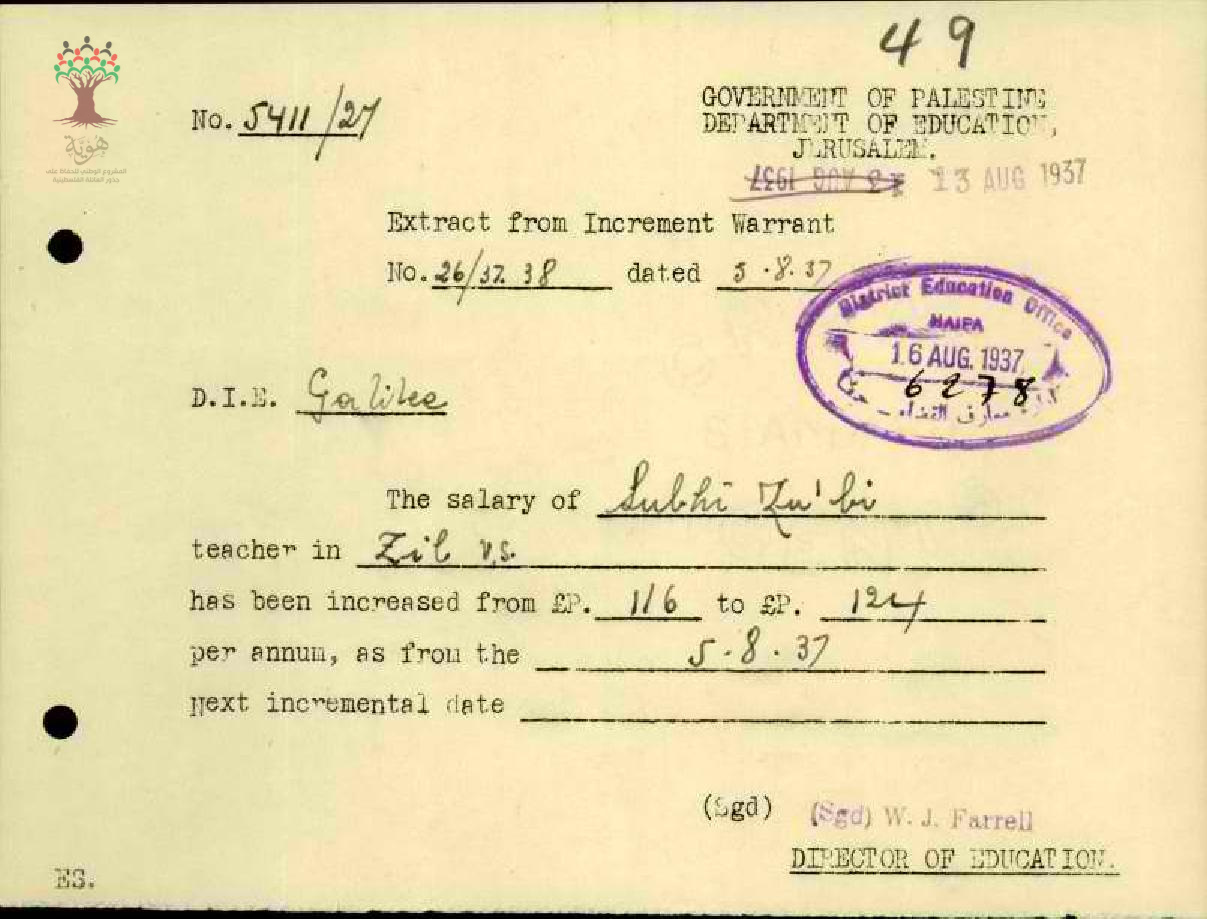 49
هوية
المشروع الوطني للحفاظ على
جذور العائلة الفلسطينية
No. 5411/27
GOVERNMENT OF PALESTINE
DEPARTMENT OF EDUCATION,
JERUSALEM.
13 AUG 1937
Extract from Increment Warrant
No. 26/37.38 dated 5.8.37
District Education Office
HAIFA
16 AUG. 1937
6278
D.I.E. Galilee
The salary of Subhi Zu'bi
teacher in Zib v.s.
has been increased from £P. 116 to £P. 124
per annum, as from the 5.8.37
Next incremental date
(Sgd) (Sgd) W. J. Farrell
DIRECTOR OF EDUCATION.
ES.